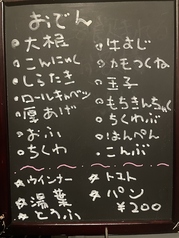 おでん
大根
こんにゃく
しらたき
ロールキャベツ
厚あげ
おふ
ちくわ
牛すじ
かもつくね
玉子
もちきんちゃく
ちくわぶ
はんぺん
こんぶ
ウインナー
湯葉
とうふ
トマト
パン
¥200